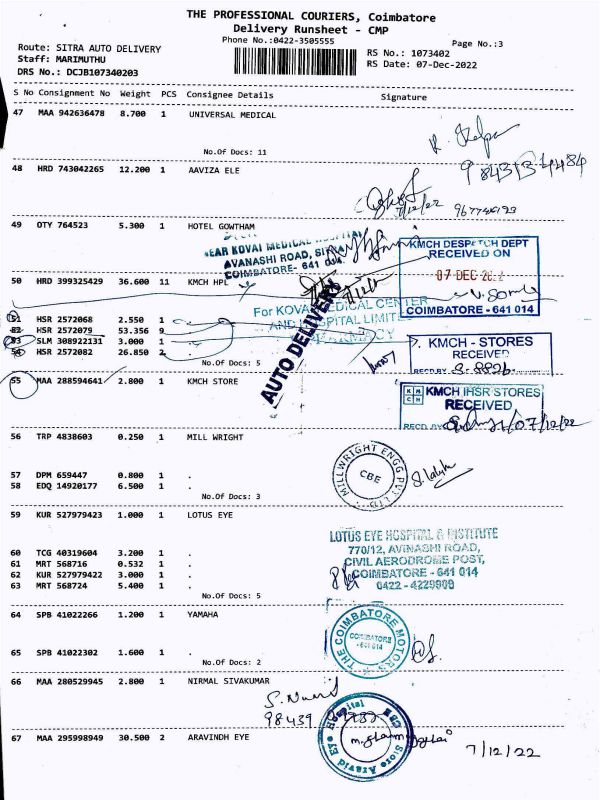 THE PROFESSIONAL COURIERS, Coimbatore
Delivery Runsheet - CMP
Phone No.:0422-3505555
Page No.:3
Route: SITRA AUTO DELIVERY
Staff: MARIMUTHU
DRS No.: DCJB107340203
RS No.: 1073402
RS Date: 07-Dec-2022
S No Consignment No Weight PCS Consignee Details Signature
47 MAA 942636478 8.700 1 UNIVERSAL MEDICAL
No.Of Docs: 11
48 HRD 743042265 12.200 1 AAVIZA ELE
49 OTY 764523 5.300 1 HOTEL GOWTHAM
NEAR KOVAI MEDICAL HOSPITAL
AVANASHI ROAD, SITRA
COIMBATORE- 641 014
KMCH DESPATCH DEPT
RECEIVED ON
07 DEC 2022
COIMBATORE - 641 014
50 HRD 399325429 36.600 11 KMCH HPL
For KOVAI MEDICAL CENTER
AND HOSPITAL LIMITED
PHARMACY
AUTO DELIVERY
51 HSR 2572068 2.550 1 .
52 HSR 2572079 53.356 9 .
53 SLM 308922131 3.000 1 .
54 HSR 2572082 26.850 2 .
No.Of Docs: 5
KMCH - STORES
RECEIVED
RECD.BY
55 MAA 288594641 2.800 1 KMCH STORE
KMCH IHSR STORES
RECEIVED
RECD. BY
07/12/22
56 TRP 4838603 0.250 1 MILL WRIGHT
MILLWRIGHT ENGG PVT LTD
CBE
57 DPM 659447 0.800 1 .
58 EDQ 14920177 6.500 1 .
No.Of Docs: 3
59 KUR 527979423 1.000 1 LOTUS EYE
LOTUS EYE HOSPITAL & INSTITUTE
770/12, AVINASHI ROAD,
CIVIL AERODROME POST,
COIMBATORE - 641 014
0422 - 4229909
60 TCG 40319604 3.200 1 .
61 MRT 568716 0.532 1 .
62 KUR 527979422 3.000 1 .
63 MRT 568724 5.400 1 .
No.Of Docs: 5
64 SPB 41022266 1.200 1 YAMAHA
THE COIMBATORE MOTORS
COIMBATORE
-641 014
65 SPB 41022302 1.600 1 .
No.Of Docs: 2
66 MAA 280529945 2.800 1 NIRMAL SIVAKUMAR
67 MAA 295998949 30.500 2 ARAVINDH EYE
7/12/22